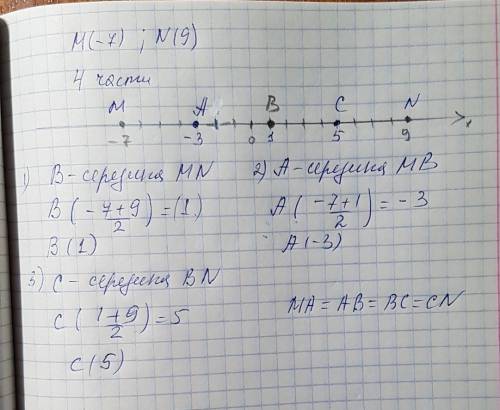 M(-7) ; N(9)
4 части
M A B C N
-7 -3 0 1 5 9 x
1) B - середина MN
B(-7+9/2)=(1)
B(1)
2) A - середина MB
A(-7+1/2)=-3
A(-3)
3) C - середина BN
C(1+9/2)=5
C(5)
MA=AB=BC=CN